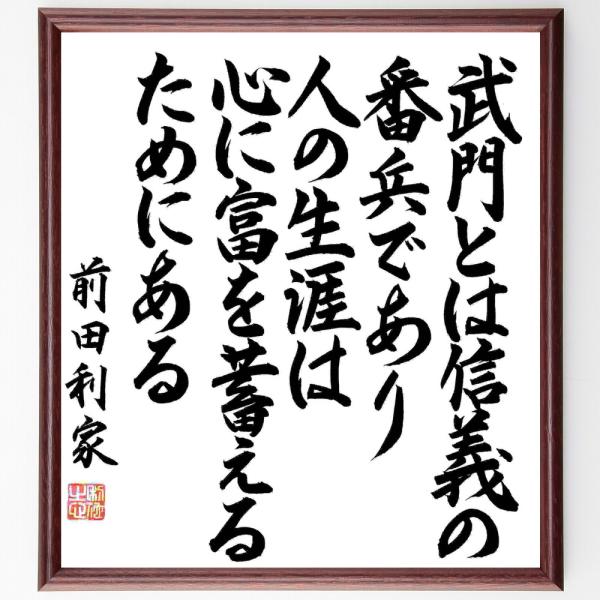 武門とは信義の
番兵であり
人の生涯は
心に富を蓄える
ためにある
前田利家